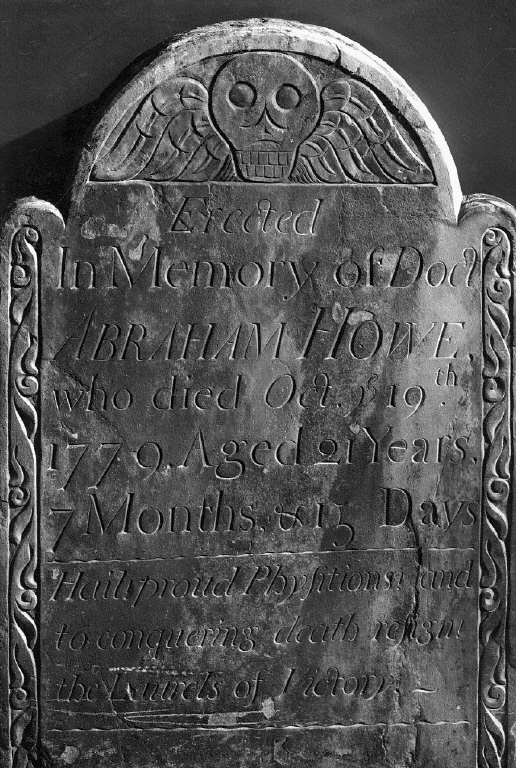 Erected
In Memory of Doct
ABRAHAM HOWE,
who died Oct. yᵉ 19ᵗʰ.
1779, Aged 21 Years,
7 Months, & 15 Days
Hail! proud Phyſitions: and
to conquering death reſign!
the of Victory. ~